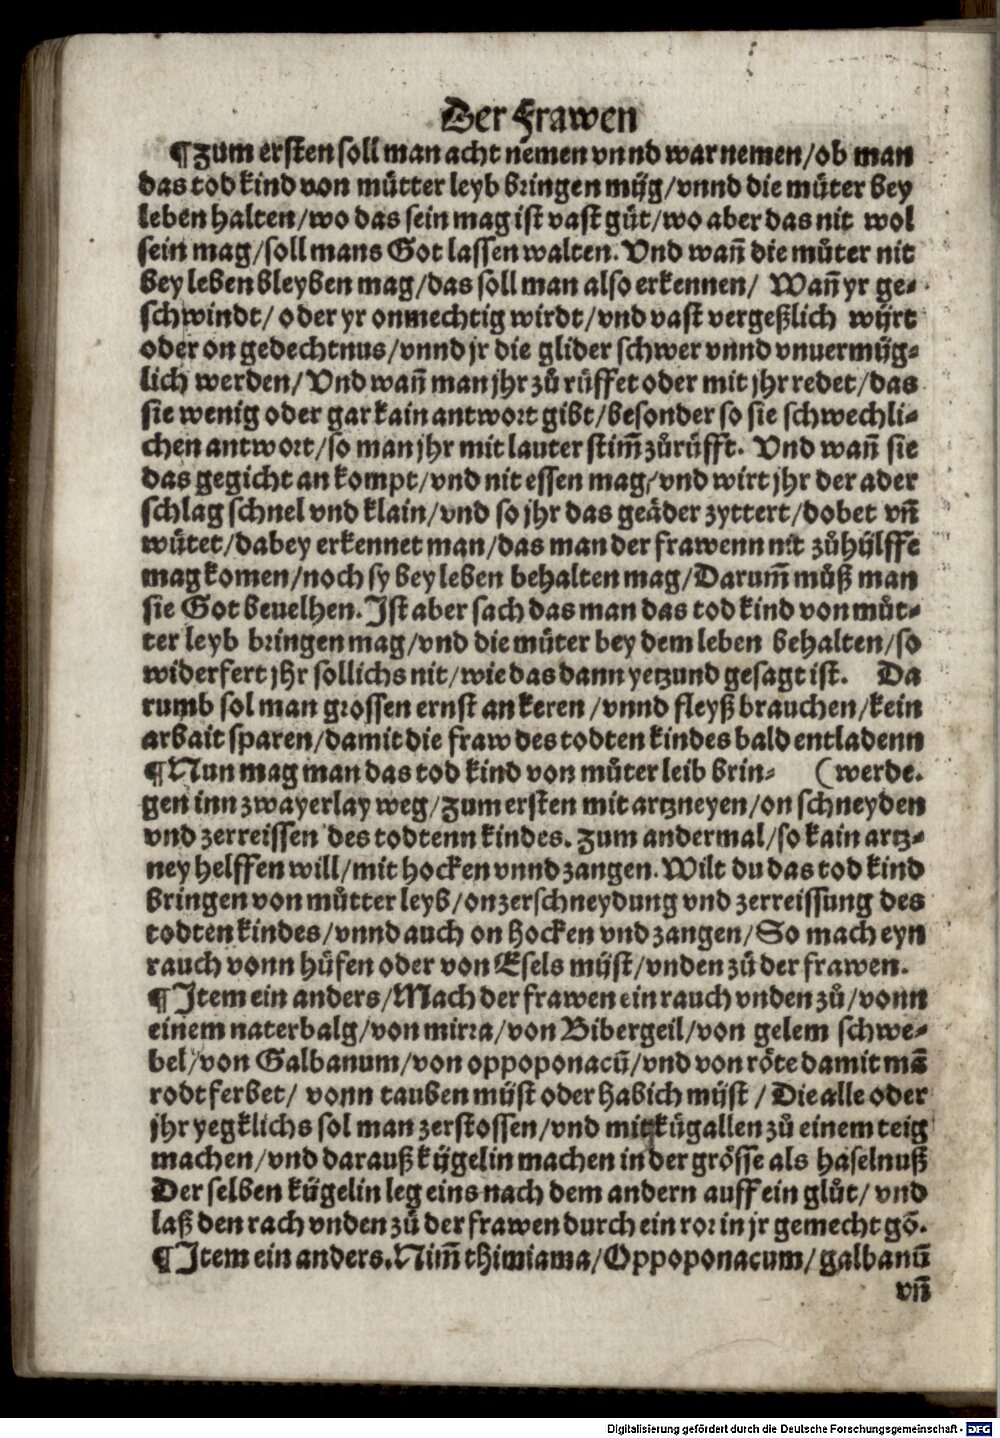 Der Frawen
¶Zum ersten soll man acht nemen vnnd war nemen/ob man
das tod kind von můtter leyb bringen müg/vnnd die můter bey
leben halten/wo das sein mag ist vast gůt/wo aber das nit wol
sein mag/soll mans Got lassen walten. Vnd wañ die můter nit
bey leben bleyben mag/das soll man also erkennen/ Wañ yr ge⸗
schwindt/ oder yr onmechtig wirdt/vnd vast vergeßlich wijrt
oder on gedechtnus/vnnd jr die glider schwer vnnd vnuermüg⸗
lich werden/Vnd wañ man jhr zů růffet oder mit jhr redet/das
sie wenig oder gar kain antwort gibt/besonder so sie schwechli⸗
chen antwort/so man jhr mit lauter stim̃ zůrůfft. Vnd wañ sie
das gegicht an kompt/vnd nit essen mag/vnd wirt jhr der ader
schlag schnel vnd klain/vnd so jhr das geäder zyttert/dobet vñ
wütet/dabey erkennet man/das man der frawenn nit zůhülffe
mag komen/noch sy bey leben behalten mag/Darum̃ můß man
sie Got beuelhen. Ist aber sach das man das tod kind von můt⸗
ter leyb bringen mag/vnd die můter bey dem leben behalten/so
widerfert jhr sollichs nit/wie das dann yetzund gesagt ist. Da
rumb sol man grossen ernst an keren/vnnd fleyß brauchen/kein
arbait sparen/damit die fraw des todten kindes bald entladenn
¶Nun mag man das tod kind von můter leib brin⸗ (werde.
gen inn zwayerlay weg/Zum ersten mit artzneyen/on schneyden
vnd zerreissen des todtenn kindes. Zum andermal/so kain artz⸗
ney helffen will/mit hocken vnnd zangen. Wilt du das tod kind
bringen von můtter leyb/on zerschneydung vnd zerreissung des
todten kindes/vnnd auch on hocken vnd zangen/So mach eyn
rauch vonn hůfen oder von Esels müst/vnden zů der frawen.
¶Item ein anders/Mach der frawen ein rauch vnden zů/vonn
einem naterbalg/von mirra/von Bibergeil/von gelem schwe⸗
bel/von Galbanum/von oppoponacũ/vnd von röte damit mã
rodt ferbet/ vonn tauben müst oder habich müst/ Die alle oder
jhr yegklichs sol man zerstossen/vnd mit kůgallen zů einem teig
machen/vnd darauß kügelin machen in der grösse als haselnuß
Der selben kügelin leg eins nach dem andern auff ein glůt/ vnd
laß den rach vnden zů der frawen durch ein ror in jr gemecht gõ.
¶Item ein anders. Nim̃ thimiama/Oppoponacum/galbanũ
vñ
Digitalisierung gefördert durch die Deutsche Forschungsgemeinschaft - DFG